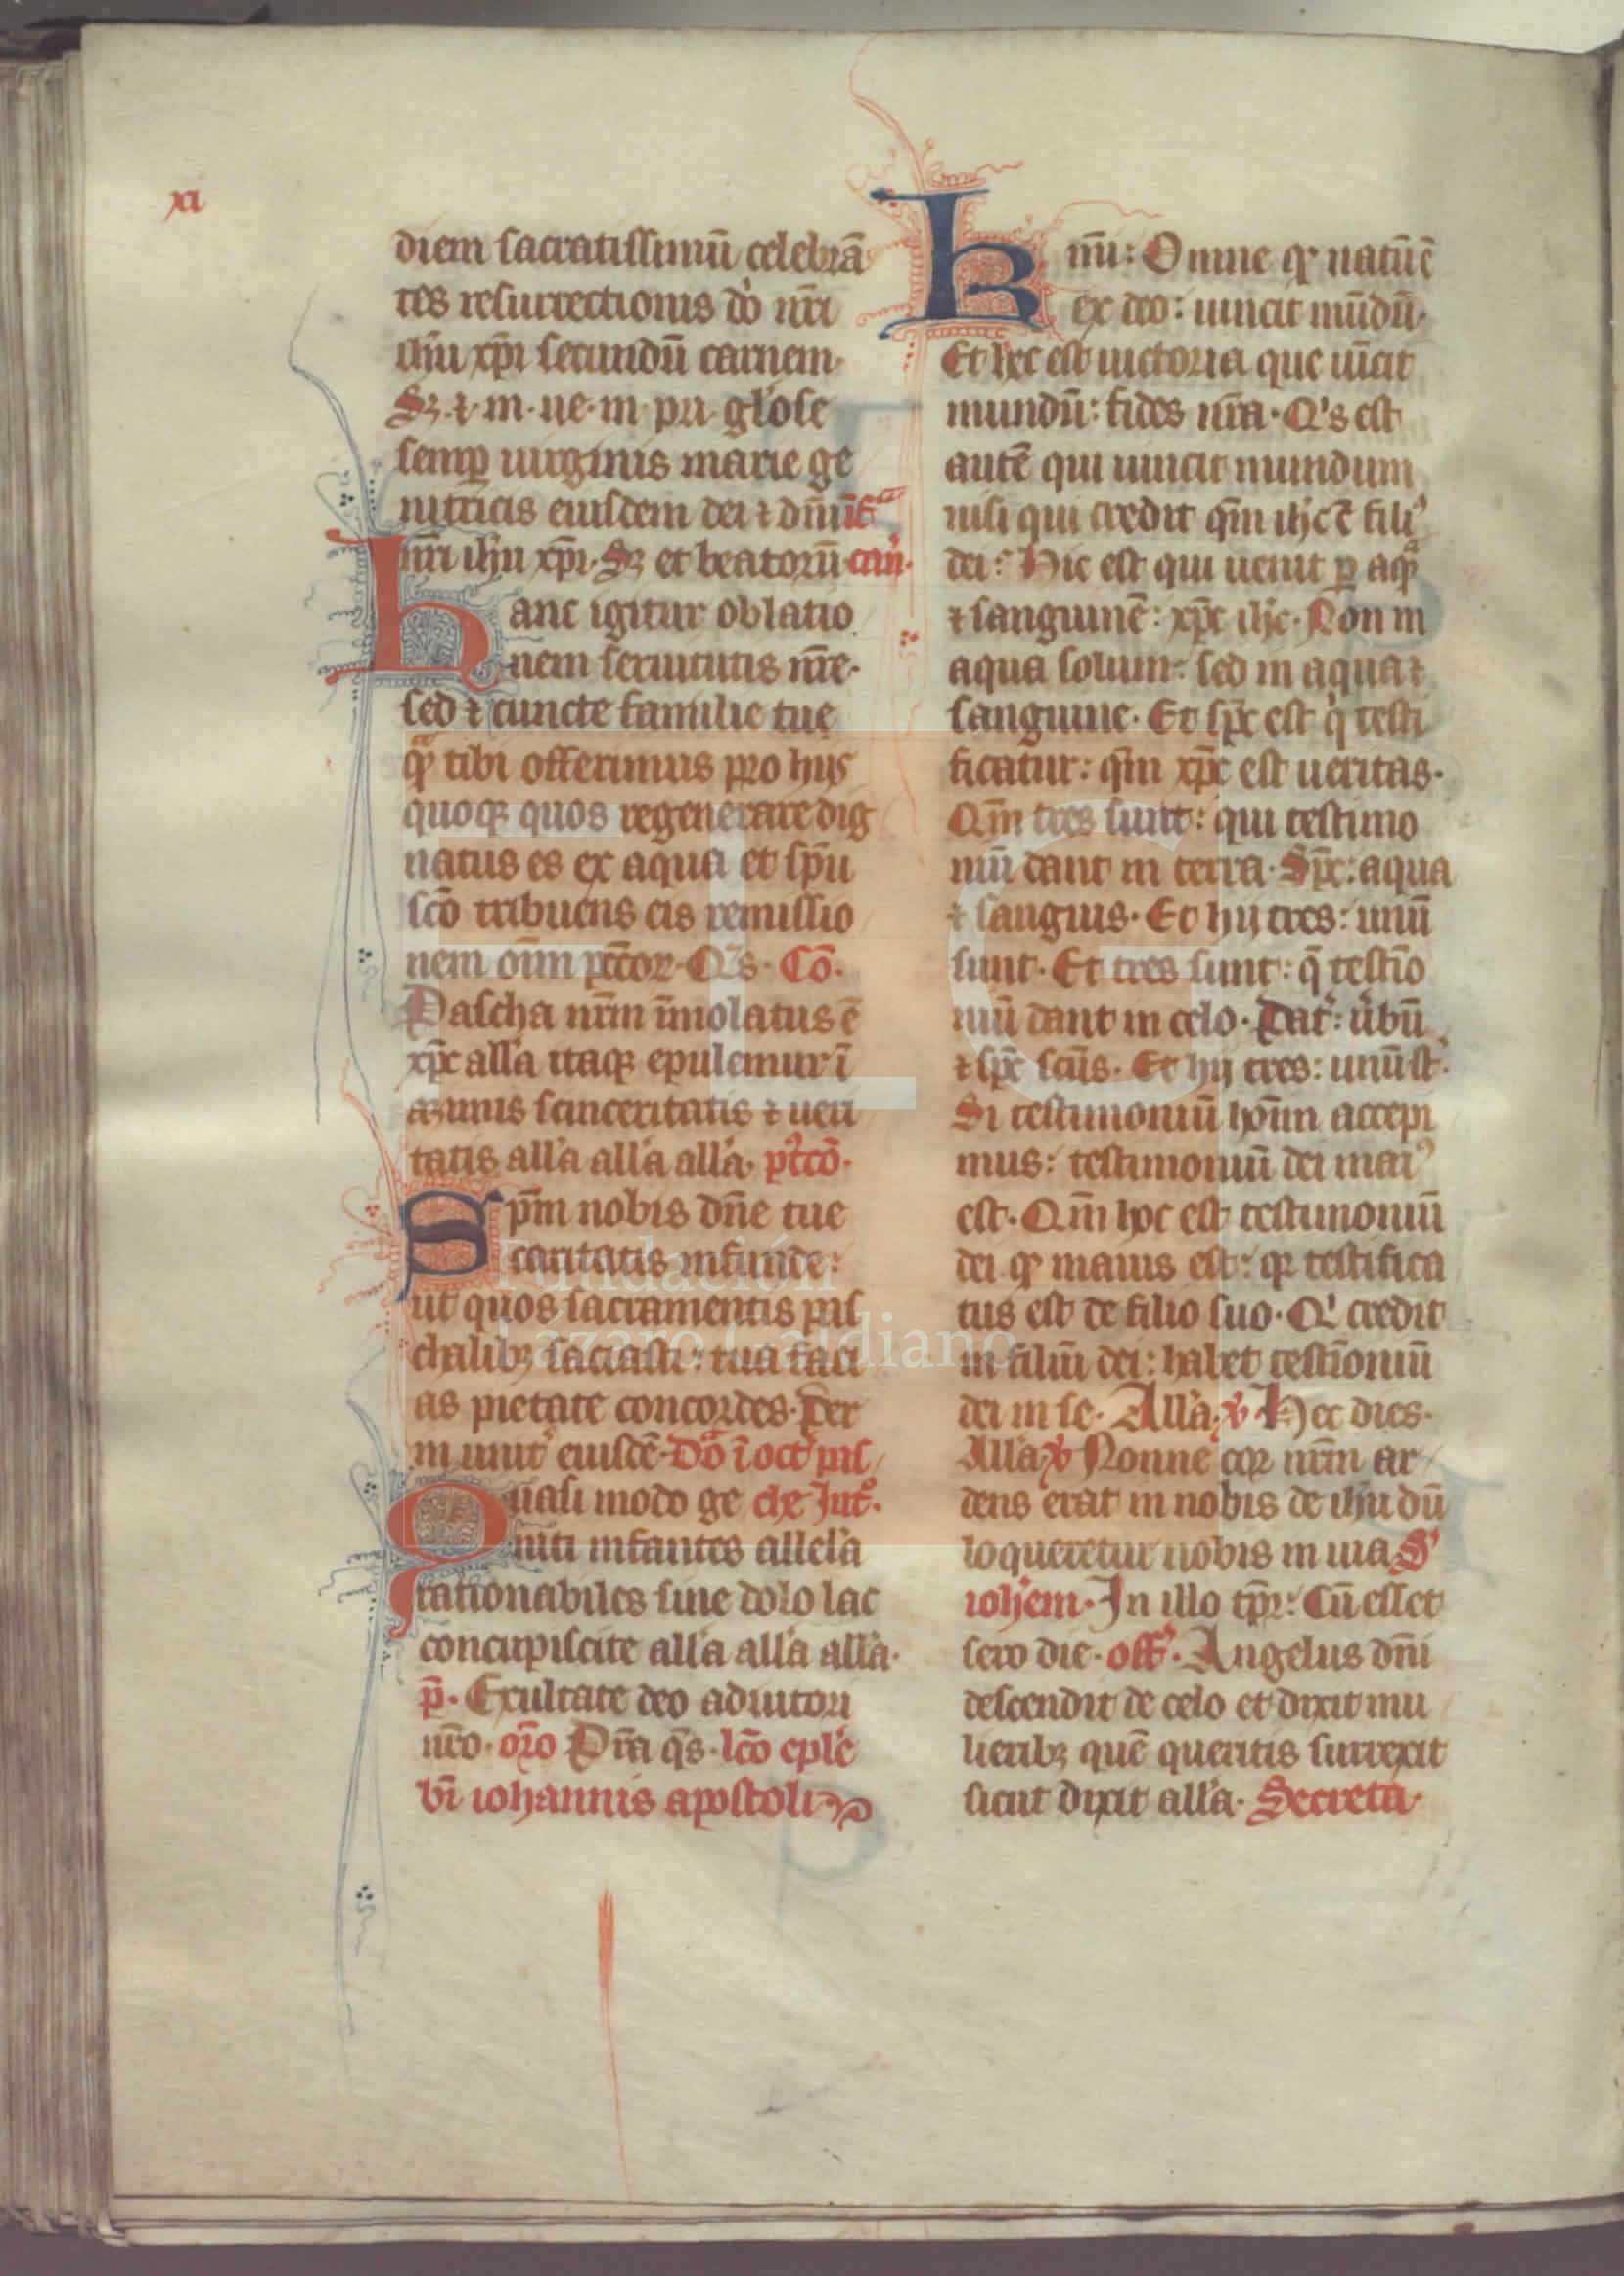 xi
diem sacratissimū celebrā
tes resurrectionis dō nr̄i
ih̄u xp̄i secundū carnem·
Sꝫ ⁊ m· ue· in p̄u· glose
semꝑ uirginis marie ge
nitricis eiusdem dei ⁊ dn̄i
nr̄i ih̄u xp̄i· Sꝫ et beatorū
hanc igitur oblatio
nem seruitutis nr̄e·
sed ⁊ cuncte familie tue
qᷓ tibi offerimus pro hijs
quoqꝫ quos regenerare dig
natus es ex aqua et sp̄u
scō tribuens eis remissio
nem oīm pctōꝝ· Qs· Cō·
Pascha nr̄m īmolatus ē
xp̄c all'a itaqꝫ epulemur ī
azimis sinceritatis ⁊ ueri
tatis all'a all'a all'a· p't cō·
Sp̄m nobis dn̄e tue
caritatis infunde:
ut quos sacramentis pas
chalibꝫ saciasti: tua faci
as pietate concordes· Per
in unit' eiusdē· Dōᷓ ī oct' pas
Quasi modo ge che Int'·
niti infantes allel'a
rationabiles sine dolo lac
concupiscite all'a all'a all'a·
p̄· Exultate deo adiutori
nr̄o· or̄o Dr̄a q̄s· lc̄o ep̄le
bī iohannis apostoli
kn̄ii: Omne qꝰ natū ē
ex deo: uincit mūdū·
Et hec est uictoria que uīcit
mundū: fides nr̄a· Q's est
autē qui uincit mundum
nisi qui credit qm̄ ih̄c ē fili'
dei: Hic est qui uenit ꝑ aqᷓ
⁊ sanguinē: xp̄c ih̄c· Non in
aqua solum: sed in aqua ⁊
sanguine· Et sp̄c est q' testi
ficatur: qm̄ xp̄c est ueritas·
Qm̄ tres sunt: qui testimo
niū dant in terra· Sp̄c: aqua
⁊ sanguis· Et hij tres: unū
sunt· Et tres sunt: q̄ testīo
niū dant in celo· Pat': ūbū
⁊ sp̄c scūs· Et hij tres: unū st'·
Si testimoniū hoīm accepi
mus: testimoniū dei mai'
est· Qm̄ hoc est testimoniū
dei qꝰ maius est: qꝛ testifica
tus est de filio suo· Q' credit
in filiū dei: habet testīoniū
dei in se· All'a· v̄ Hec dies·
All'a v̄ Nonne coꝛ nr̄m ar
dens erat in nobis de ih̄u dū
loqueretur nobis in uia S'
ioh̄em· In illo tp̄r: Cū esset
sero die· off'· Angelus dn̄i
descendit de celo et dixit mu
lieribꝫ quē queritis surrexit
sicut dixit all'a· Secreta·
Fundación
Lázaro Galdiano